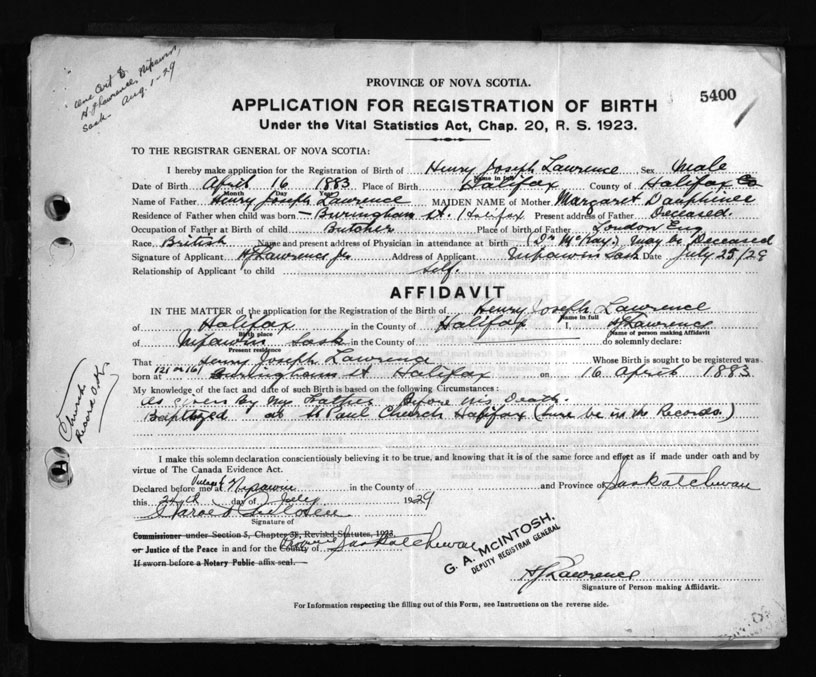 One Cert to
H J Lawrence, Nipawin,
Sask- Aug. 1-29
PROVINCE OF NOVA SCOTIA.
5400
APPLICATION FOR REGISTRATION OF BIRTH
Under the Vital Statistics Act, Chap. 20, R. S. 1923.
TO THE REGISTRAR GENERAL OF NOVA SCOTIA:
I hereby make application for the Registration of Birth of Henry Joseph Lawrence Sex Male
Name in full
Date of Birth April 16 1883 Place of Birth Halifax County of Halifax Co
Month Day Year
Name of Father Henry Joseph Lawrence MAIDEN NAME of Mother Margaret Dauphinee
Residence of Father when child was born Buringham St. Halifax Present address of Father Deceased.
Occupation of Father at Birth of child Butcher Place of birth of Father London Eng
Race British Name and present address of Physician in attendance at birth (Dr McKay.) may be Deceased
Signature of Applicant HJ Lawrence Jr Address of Applicant Nipawin Sask Date July 25/29
Relationship of Applicant to child self.
AFFIDAVIT
IN THE MATTER of the application for the Registration of the Birth of Henry Joseph Lawrence
Name in full
of Halifax in the County of Halifax I, HJ Lawrence
Birth place Name of person making Affidavit
of Nipawin Sask do solemnly declare:
Present residence
That Henry Joseph Lawrence Whose Birth is sought to be registered was
born at 121 or 161 Buringham St Halifax on 16 April 1883
My knowledge of the fact and date of such Birth is based on the following Circumstances:
As given By my Father Before his Death.
Baptized at St Paul Church Halifax ( be in the Records.)
Church
Record O.K.
I make this solemn declaration conscientiously believing it to be true, and knowing that it is of the same force and effect as if made under oath and by
virtue of The Canada Evidence Act.
Declared before me at Village of Nipawin in the County of and Province of Saskatchewan
this 24th day of July 1929
Harold
Signature of
Commissioner under Section 5, Chapter 38, Revised Statutes, 1923,
or Justice of the Peace in and for the County of Province Saskatchewan
If sworn before a Notary Public affix seal.
G. A. McINTOSH,
DEPUTY REGISTRAR GENERAL
HJ Lawrence
Signature of Person making Affidavit.
For Information respecting the filling out of this Form, see Instructions on the reverse side.